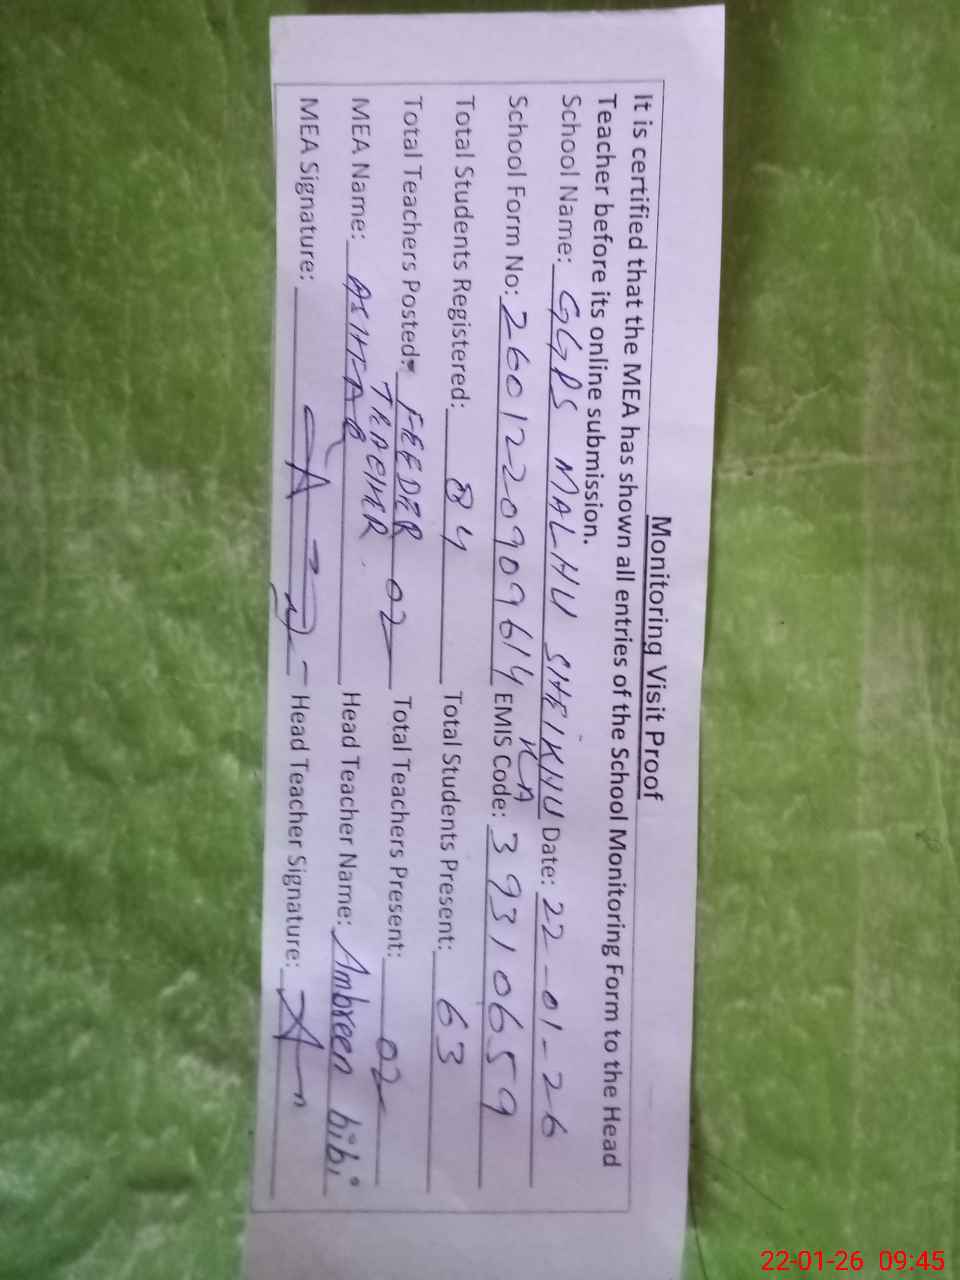 Monitoring Visit Proof
It is certified that the MEA has shown all entries of the School Monitoring Form to the Head
Teacher before its online submission.
School Name: GGPS MALHU SHEIKHU KA Date: 22-01-26
School Form No: 260122090909614 EMIS Code: 39310659
Total Students Registered: 84 Total Students Present: 63
Total Teachers Posted: FEEDER TEACHER 02 Total Teachers Present: 02
MEA Name: Head Teacher Name: Ambreen bibi
MEA Signature: Head Teacher Signature:
22-01-26 09:45